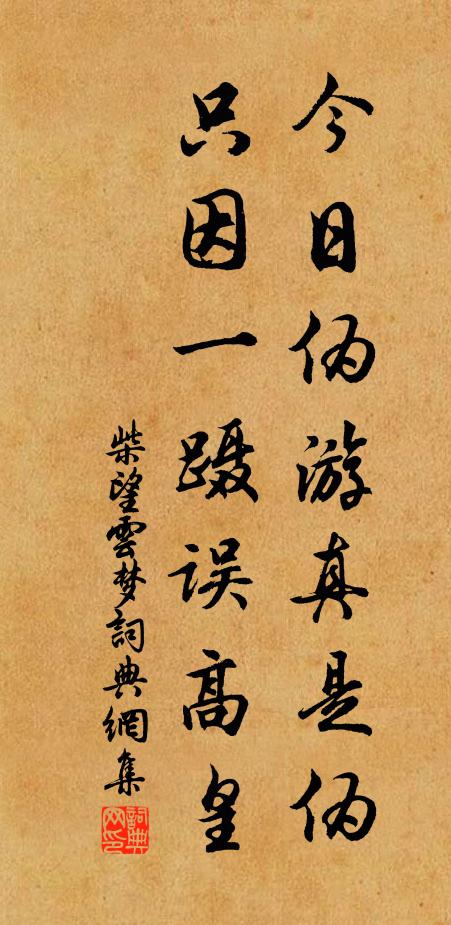 今日伪游真是伪
只因一蹑误高皇
柴望雲梦詞典網集
詞典网印